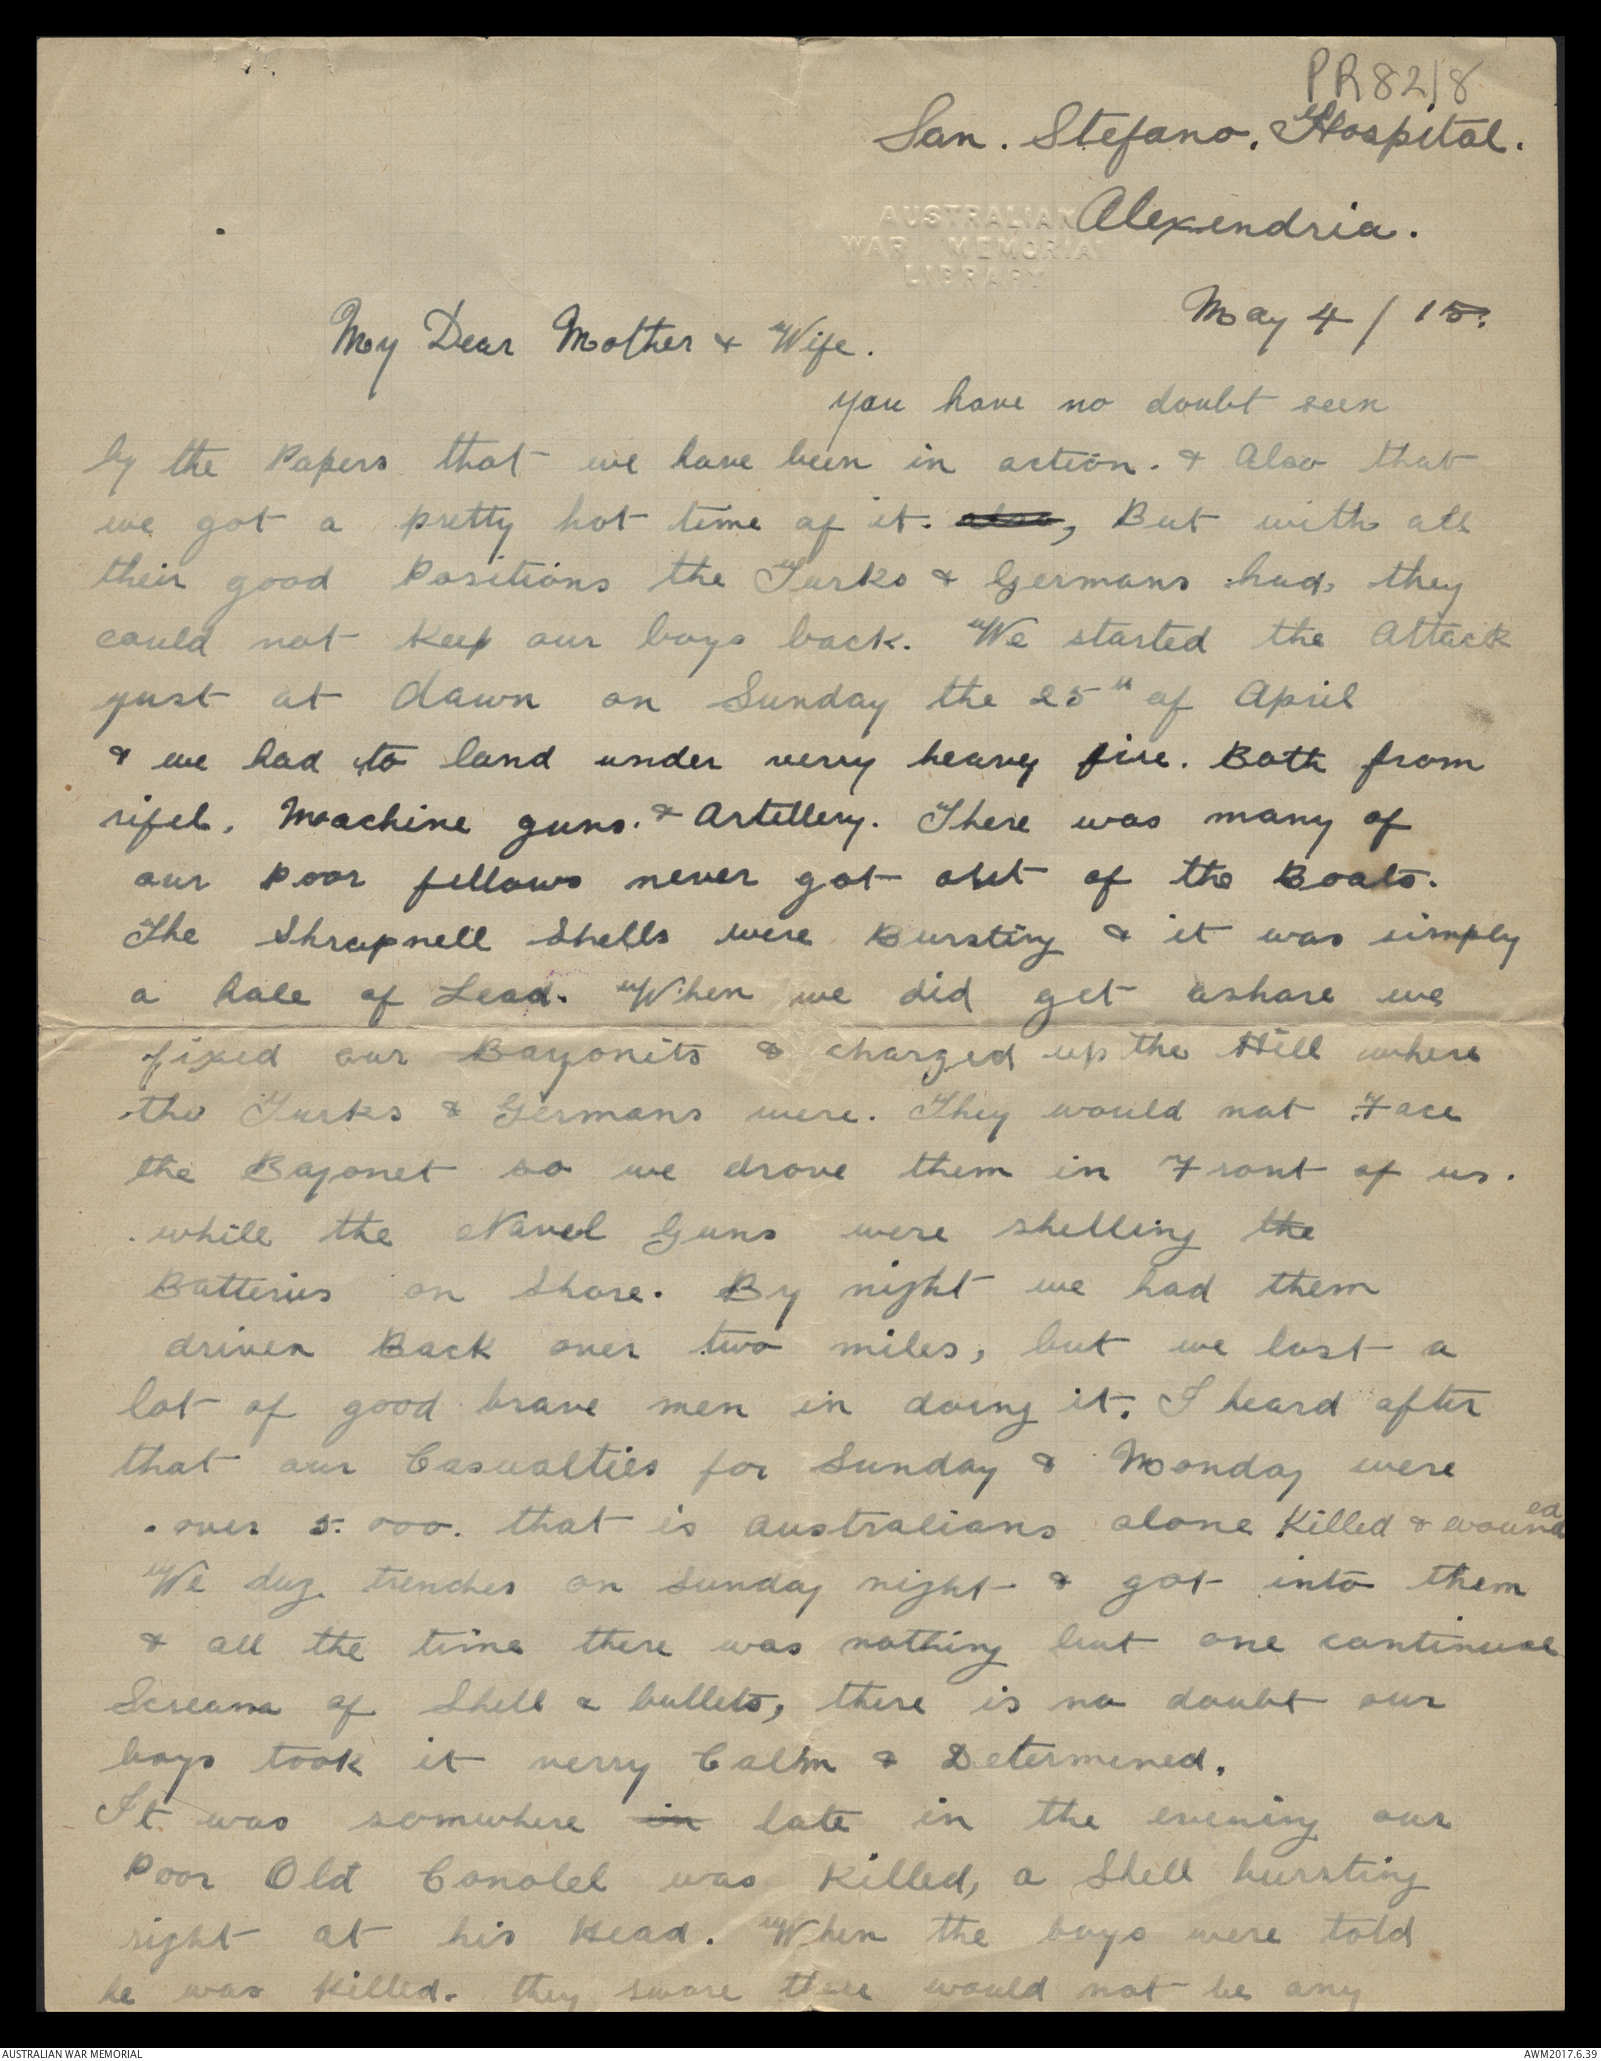 PR82/8
San. Stefano. Hospital.
AUSTRALIAN
WAR MEMORIAL
LIBRARY
Alexendria.
May 4/15.
My Dear Mother & Wife.
you have no doubt seen
by the Papers that we have been in action. & Also that
we got a pretty hot time of it. also, But with all
their good Positions the Turks & Germans had, they
could not Keep our boys back. We started the Attack
just at dawn on Sunday the 25th of April
& we had to land under verry heavy fire. Both from
rifel, Machine guns. & Artellery. There was many of
our poor fellows never got out of the Boats.
The Shrapnell Shells were Bursting & it was simply
a hale of Lead. When we did get ashore we
fixed our Bayonits & charged up the Hill where
the Turks & Germans were. They would not Face
the Bayonet so we drove them in Front of us.
while the Navel Guns were shelling the
Batteries on Shore. By night we had them
driven Back over two miles, but we lost a
lot of good brave men in doing it. I heard after
that our Casualties for Sunday & Monday were
over 5.000. that is Australians alone Killed & wounded
We dug trenches on Sunday night & got into them
& all the time there was nothing but one continual
Screama of Shell & bullets, there is no doubt our
boys took it verry Calm & Determened.
It was somwhere in late in the evening our
Poor Old Conolel was Killed, a Shell bursting
right at his Head. When the boys were told
he was Killed. they swore there would not be any
AUSTRALIAN WAR MEMORIAL
AWM2017.6.39